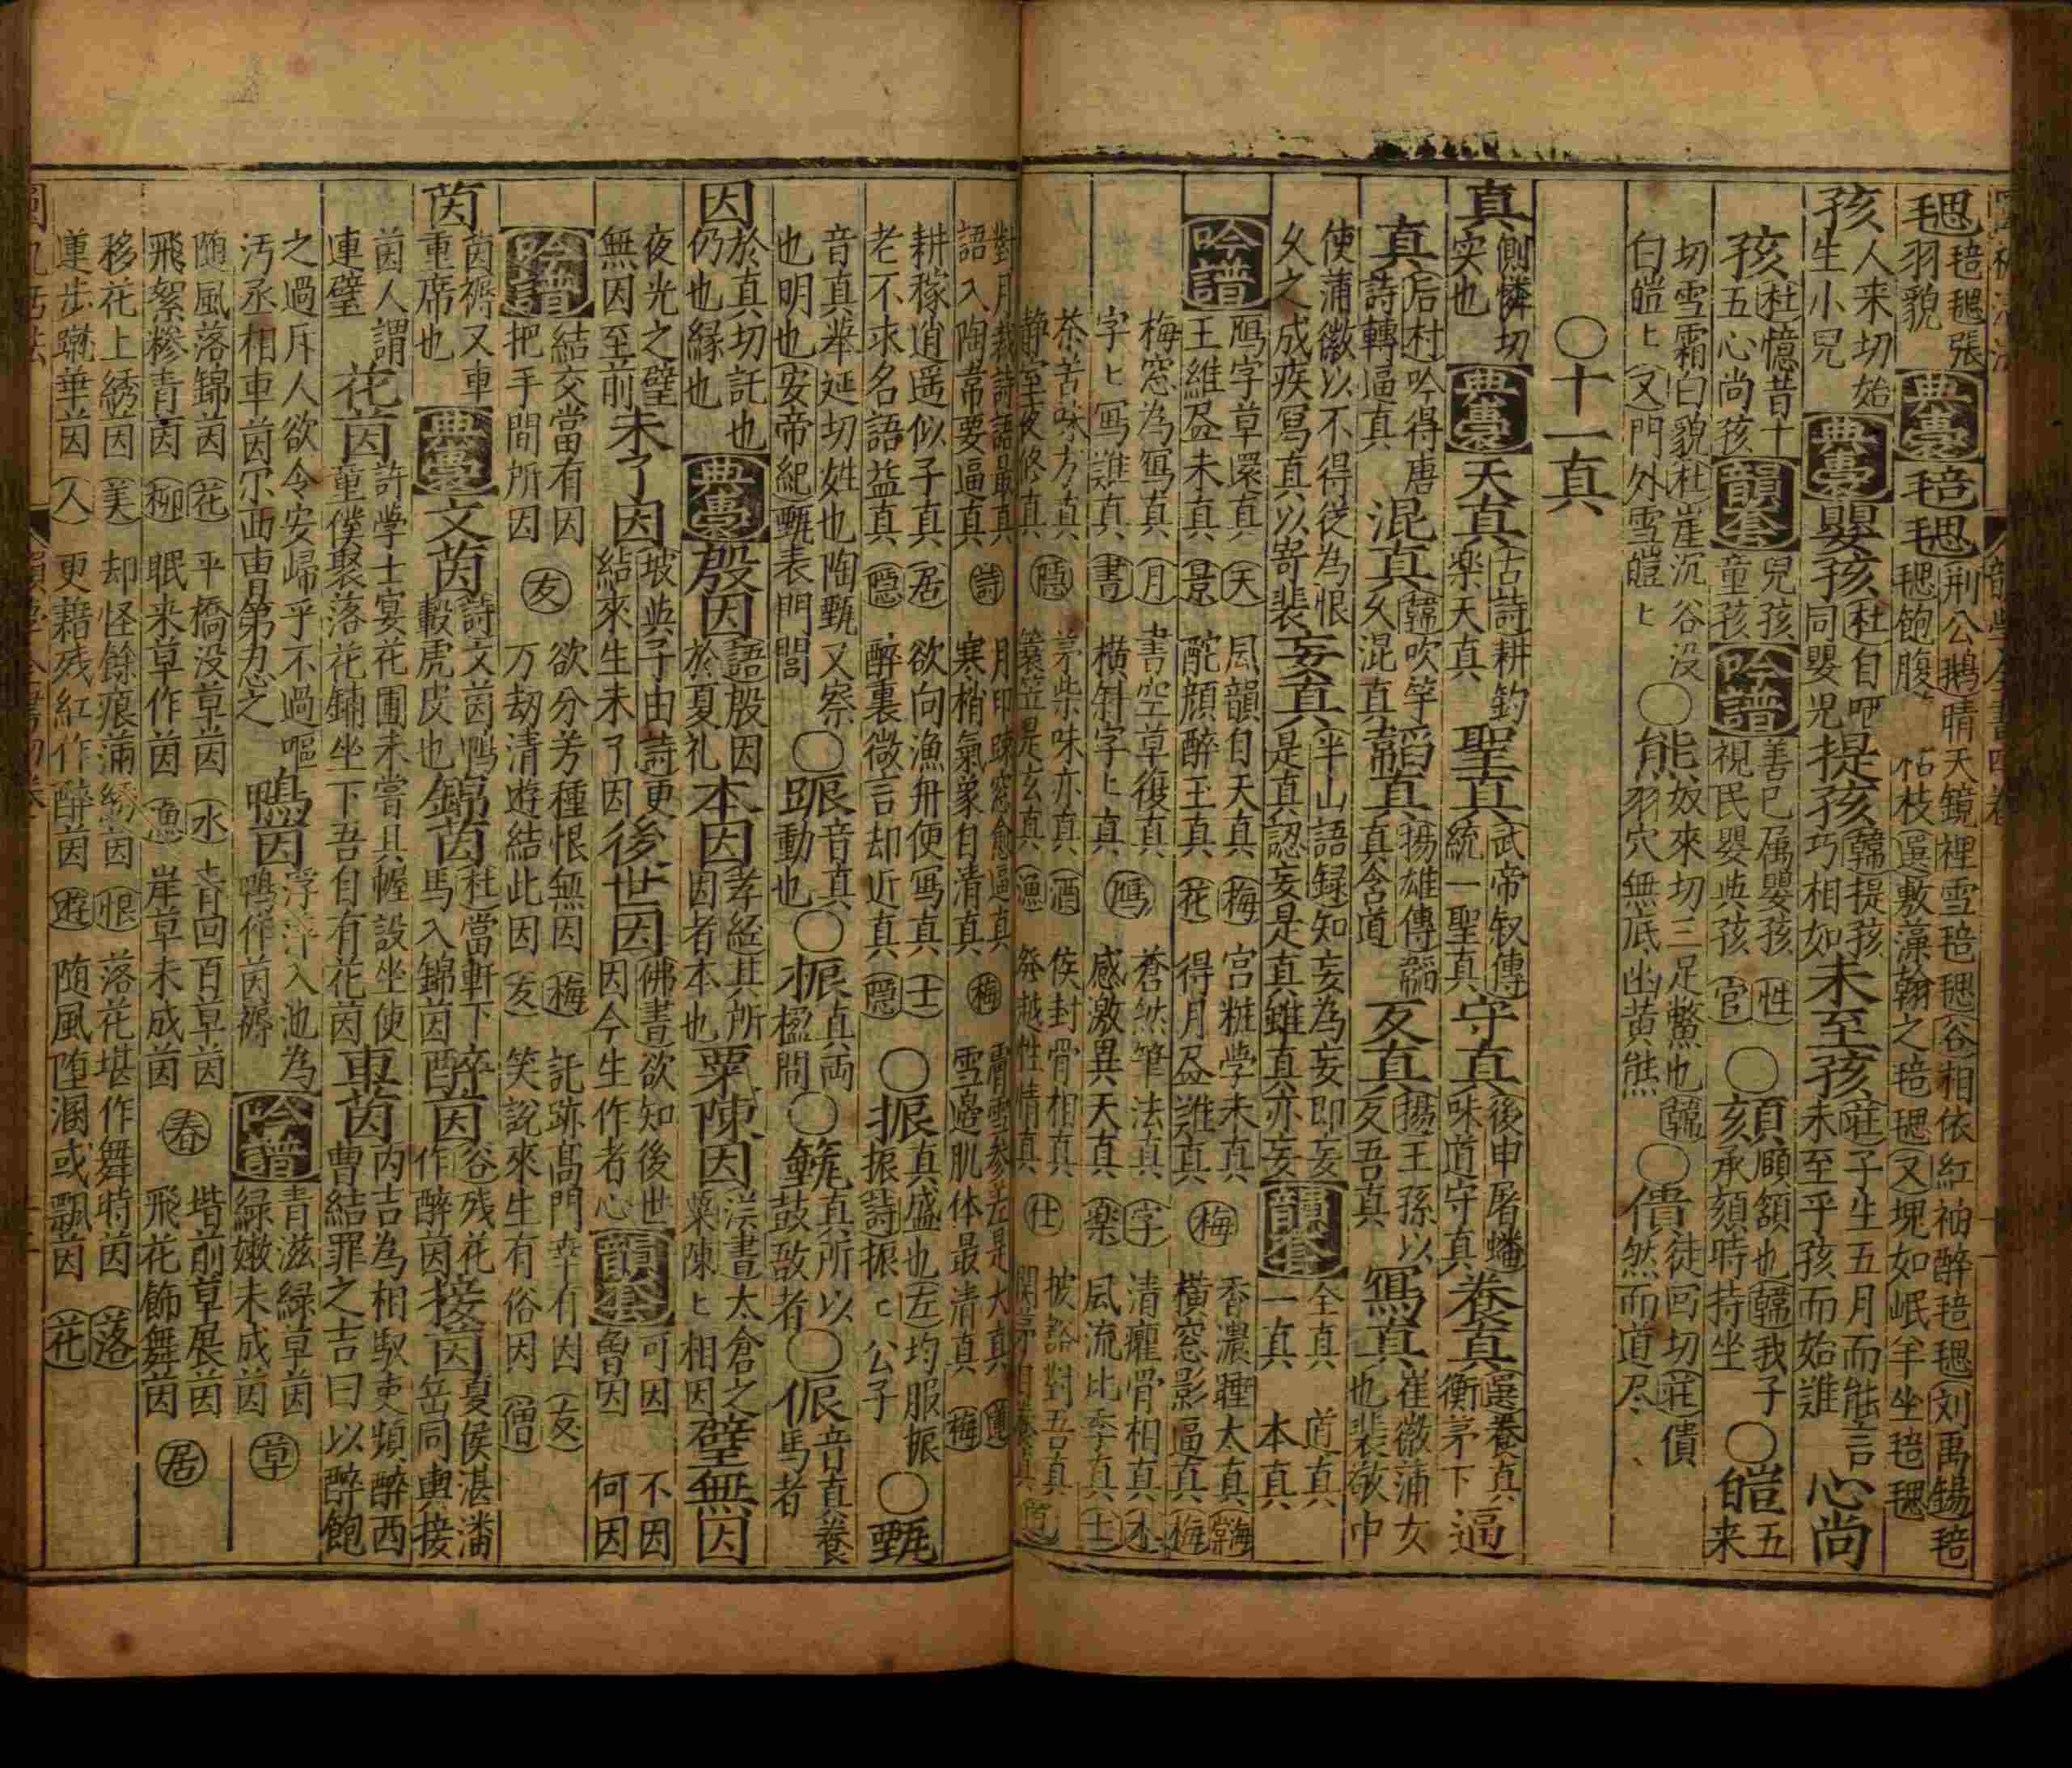 毸 毰毸張羽貌 典囊 毰毸 荆公鵝晴天鏡裡雪毰毸 谷相依紅袖醉毰毸 刘禹錫毰毸飽腹 選敷藻翰之毰毸 又塊如岷羊坐毰毸
孩 人来切始生小兒 典囊 嬰孩 杜自同嬰兒 提孩 韓提孩巧相如 未至孩 莊子生五月而能言未至乎孩而始誰 心尚
孩 杜憶昔十五心尚孩 韻套 兒孩 童孩 吟譜 善已属嬰孩 性 視民嬰典孩 官 ○頦 頤頷也韓我子承頦時持坐 ○皚 五来
切雪霜白貌杜崖沉谷没白皚ヒ又門外雪皚ヒ ○能 奴來切三足鱉也韓羽穴無底幽黄熊 ○僓 徒回切莊僓然而道尽
○十一真
真 側憐切实也 典囊 天真 古詩耕釣楽天真 聖真 武帝叙傳統一聖真 守真 後申屠蟠味道守真 養真 選養真衡茅下 逼
真 后村吟得唐詩轉逼真 混真 韓吹竽久混真 韜真 揚雄傳韜真含道 反真 揚王孫以反吾真 寫真 崔徽蒲女也裴敬中
使蒲徽以不得従為恨久之成疾寫真以寄裴 妄真 半山語録知妄為妄即妄是真認妄是真雖真亦妄 韻套 全真 道真 一真 本真
吟譜 鴈字草還真 天 風韻自天真 梅 宫粧学未真 梅 香濃睡太真 海棠 王維盈未真 景 酡顔醉玉真 花 得月盈誰真 横窓影逼真 梅
梅窓為寫真 月 書空草復真 鴈 蒼然筆法真 字 清癯骨相真 木 字ヒ寫誰真 書 横斜字ヒ真 感激異天真 楽 風流比季真 士
茶苦味方真 隠 茅柴味亦真 酒 侯封骨相真 仕 披豁對吾真 静室夜修真 簑笠是玄真 漁 発越性情真
對月裁詩語最真 詩 月印疎窓愈逼真 梅 霄雪参差是太真 語入陶常要逼真 寒梢氣象自清真 雪邉肌体最清真 梅
耕稼逍遥似子真 居 欲向漁舟便寫真 士 老不求名語益真 隠 醉裏微言却近真 隠 ○振 真盛也左均服振振詩振ヒ公子 ○甄
音真莘延切姓也陶甄又察也明也安帝紀甄表門閭 ○踬 音真動也 ○桭 真両楹間 ○𪔛 真所以鼓敔者 ○侲 音真養馬者
因 於真切託也仍也縁也 典囊 殷因 語殷因於夏礼 本因 孝経其所因者本也 粟陳因 漢書太倉之粟陳ヒ相因 璧無因
夜光之璧無因至前 未了因 坡與子由詩更結來生未了因 後世因 佛書欲知後世因今生作者心 韻套 可因 不因 魯因 何因
吟譜 結交當有因 友 欲分芳種恨無因 梅 託跡髙門幸有因 友 把手間所因 万劫清遊結此因 友 笑説來生有俗因 僧
茵 茵褥又車重席也 典囊 文茵 詩文茵暢轂虎皮也 錦茵 杜當軒下馬入錦茵 醉茵 谷残花作醉茵 接茵 夏侯湛潘岳同輿接
茵人謂連璧 花茵 許学士宴花圃未嘗具幄設坐使童僕聚落花鋪坐下吾自有花茵 車茵 丙吉為相馭吏頻醉西曹結罪之吉曰以醉飽
之過斥人欲令安歸乎不過嘔汚丞相車茵尓西曹第忍之 鴨茵 浮萍入池為鴨作茵褥 吟譜 青滋緑草茵 草 緑嫩未成茵
随風落錦茵 花 平橋没草茵 水 青回百草茵 春 堦前草展茵 居 飛絮糝青茵 柳 眠来草作茵 漁 岸草未成茵 飛花飾舞茵
移花上綉茵 美 却怪餘痕滿綉茵 恨 落花堪作舞時茵 落 蓮步蹴華茵 人 更藉残紅作醉茵 遊 随風堕溷或飄茵 花